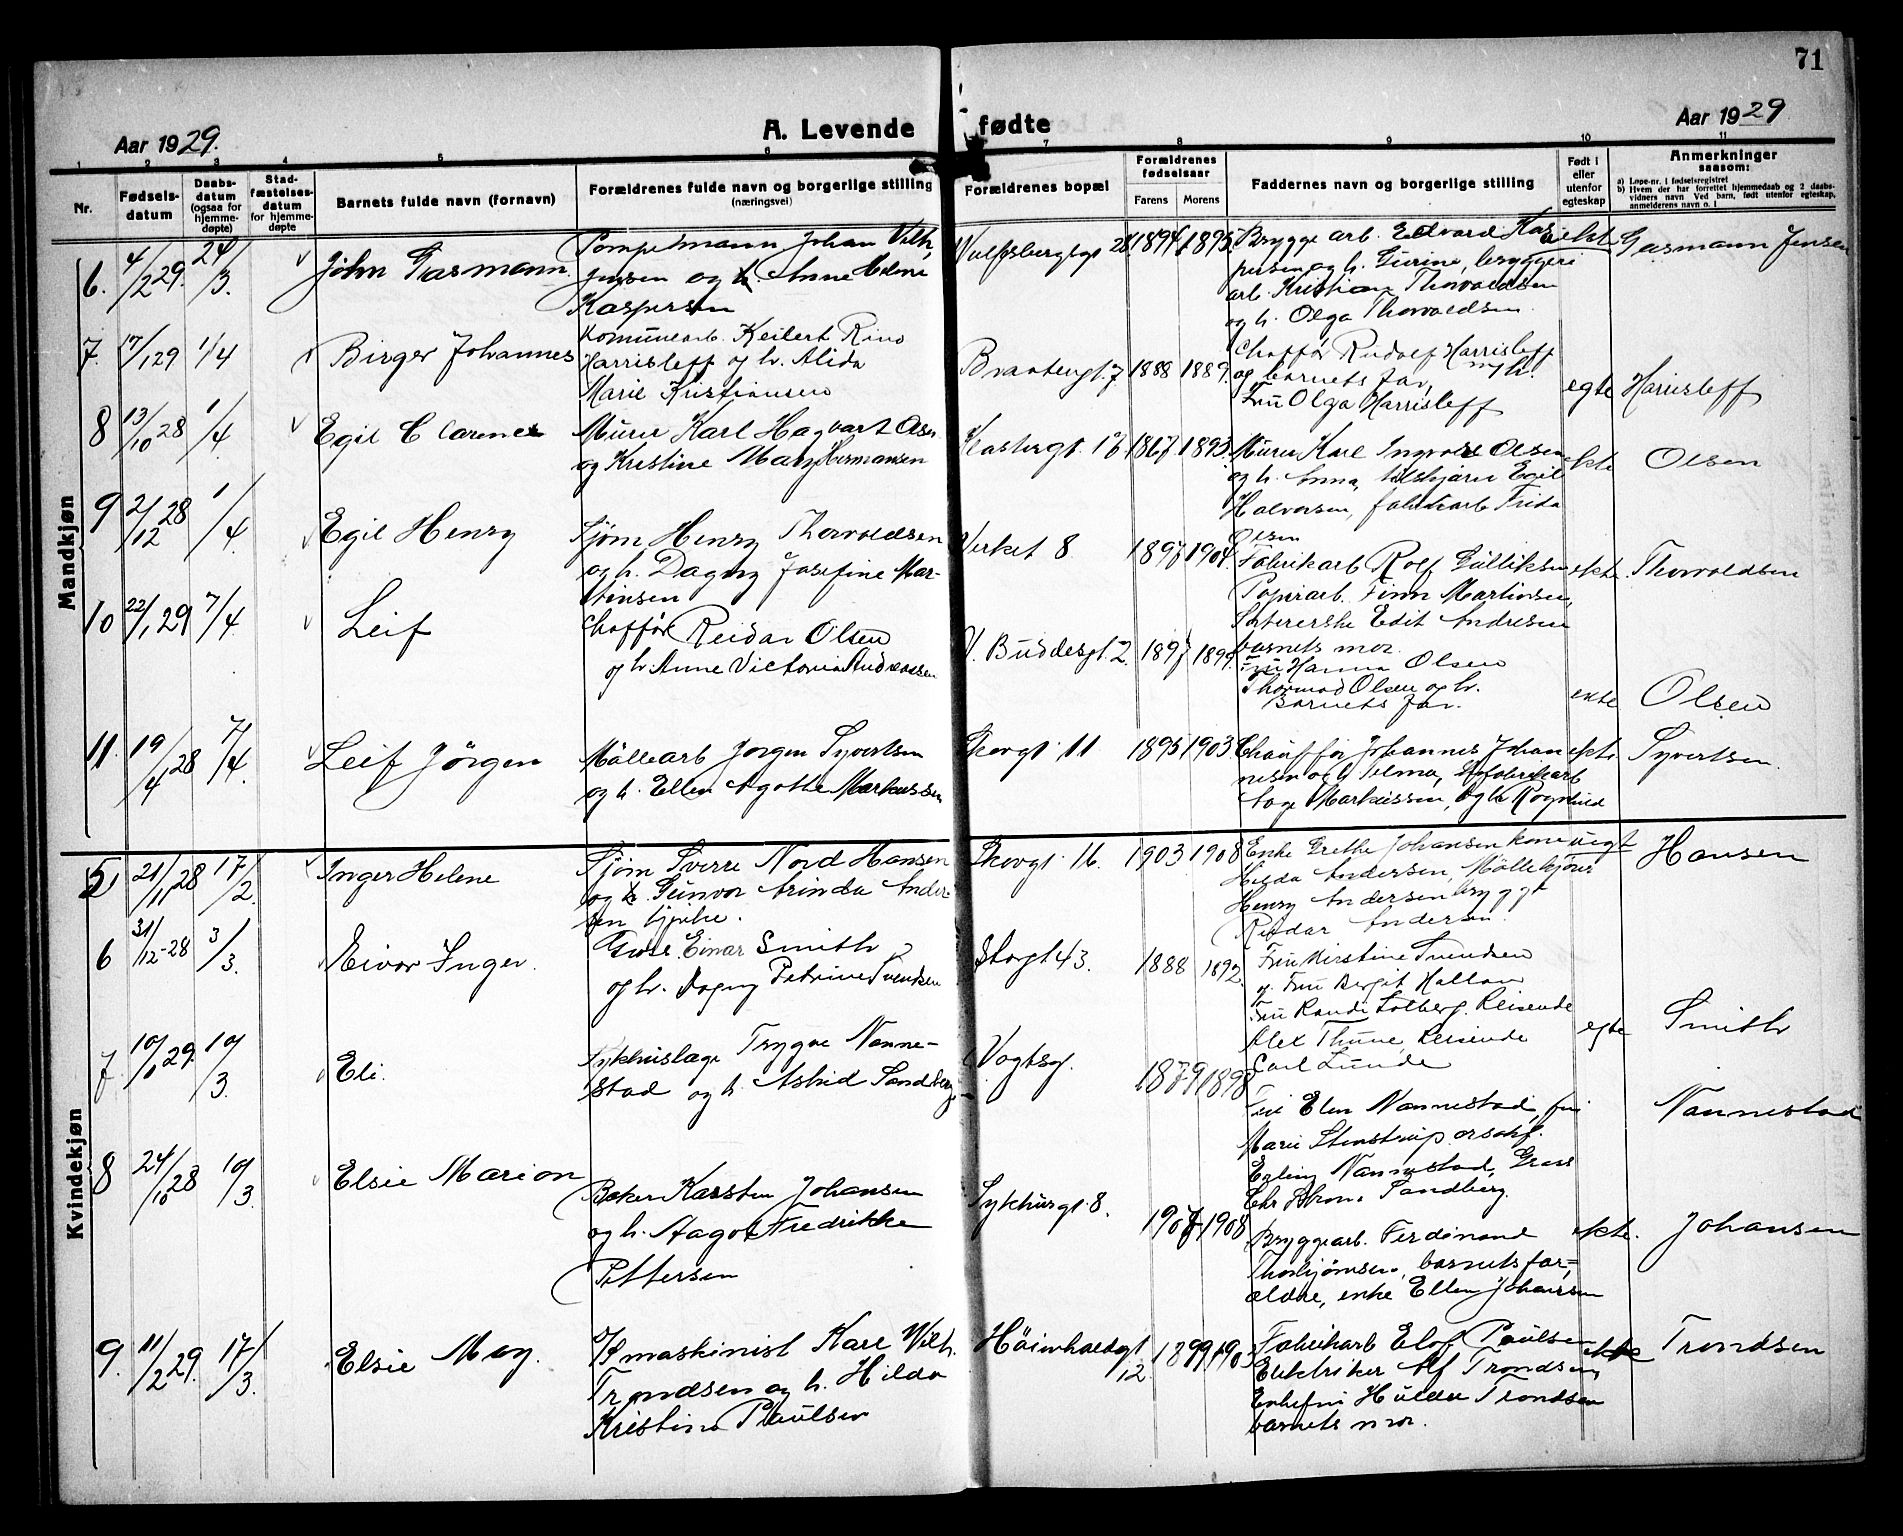 71
Aar 1929.
A. Levende fødte
Aar 1929
1 2 3 4 5 6 7 8 9 10 11
Nr.
Fødsels-
datum
Daabs-
datum
(ogsaa for
hjemme-
døpte)
Stad-
fæstelses-
datum
for hjemme-
døpte
Barnets fulde navn (fornavn)
Forældrenes fulde navn og borgerlige stilling
(næringsvei)
Forældrenes bopæl
Forældrenes
fødselsaar
Farens Morens
Faddernes navn og borgerlige stilling
Født i
eller
utenfor
egteskap
Anmerkninger
saasom:
a) Løpe-nr. i fødselsregistret
b) Hvem der har forrettet hjemmedaab og 2 daabs-
vidners navn Ved barn, født utenfor egteskap,
anmelderens navn o. l
Mandkjøn
6. 4/2 29. 24/3. John Gasmann.
Pompemann Johan Vilh.
Jensen og h. Anne Helene
Kaspersen
Wulfsbergsgt 28. 1894 1895
Brygge arb. Edvard Kas
persen og h. Gurine, bryggeri
arb. Kristian Thorvaldsen
og h. Olga Thorvaldsen.
ekt Gasmann Jensen
7. 17/1 29 1/4 Birger Johannes
Komunearb. Keilert Rino
Harrisleff og h. Alida
Marie Kristiansen
Braatengt. 7 1888 1889.
Chaffør Rudolf Harrisleff
og h.
og barnets far,
Fru Olga Harrisleff
egte Harrisleff
8 13/10 28 1/4 Egil Clarence
Murer Karl Hagbart Olsen
og Kristine Mary Hermansen
1867 1893.
Murer Karl Ingvald Olsen
og h. Anna, Egil
Halvorsen, fabrikarb Frida
Olsen
ekte Olsen
9 21/12 28 1/4. Egil Henry
Sjøm Henry Thorvaldsen
og h. Dagny Josefine Mar-
tinsen
Verket 8 1897 1904.
Fabrikarb Rolf Gulliksen
Papirarb. Finn Martinsen,
Edit Andresen
barnets mor.
ekte. Thorvaldsen
10 22/1 29 7/4 Leif
Chaffør Reidar Olsen
og h. Anne Victoria Andreassen
V. Buddesgt. 2. 1897 1899.
Fru Hanna Olsen
Thormod Olsen og h.
Barnets far.
ekte Olsen
11. 19/4 28 7/4. Leif Jörgen
Møllearb Jørgen Syvertsen
og h. Ellen Agathe Markussen
Skovgt. 11 1895 1903.
Chauffør Johannes Johan
nesen og h Selma, fabrikarb
Aage Markussen, og h Ragnhild
ekte Syvertsen.
Kvindekjøn
5 21/11 28 17/2. Inger Helene
Sjøm Sverre Nord Hansen
og h. Gunvor Arinda Ander
sen
Skovgt. 16. 1903 1908
Enke Grethe Johansen kone
Hilda Andersen, Møllekjører
Henry Andersen brygge
Reidar Andersen.
uegt Hansen
6 31/12-28 3/3. Eivor Inger.
Gros. Einar Smith
og h. Dagny Petrine Svendsen
Storgt 43. 1888 1892.
Fru Kirstine Svendsen
og Fru Birgit Halland
Fru Randi Solberg. Reisende
Alex Thune, Reisende
Carl Lunde
egte Smith
7 10/1 29. 10/3. Eli.
Sykhuslæge Trygve Nanne-
stad og h. Astrid Sandberg
Vogtsg. 1879 1898
Elen Nannestad, fru
Marie Stenstrup
Erling Nannestad, Gross
Chr Sandberg.
Nannestad
8 24/10 28 10/3. Elsie Marion
Baker Karsten Johansen
og h. Aagot Fredrikke
Pettersen
Sykhusgt. 8. 1907 1908
Bryggearb. Ferdinand
Thorbjørnsen, barnets for-
ældre, enke Ellen Johansen
ekte. Johansen
9. 11/2 29. 17/3. Elsie May.
maskinist Karl Vilh.
Trondsen og h. Hilda
Kristine Paulsen
Høienhaldgt
12. 1899 1903
Fabrikarb Elof Paulsen
Elektriker Alf Trondsen,
Enkefru Hulda Trondsen
barnets mor.
ekte Trondsen